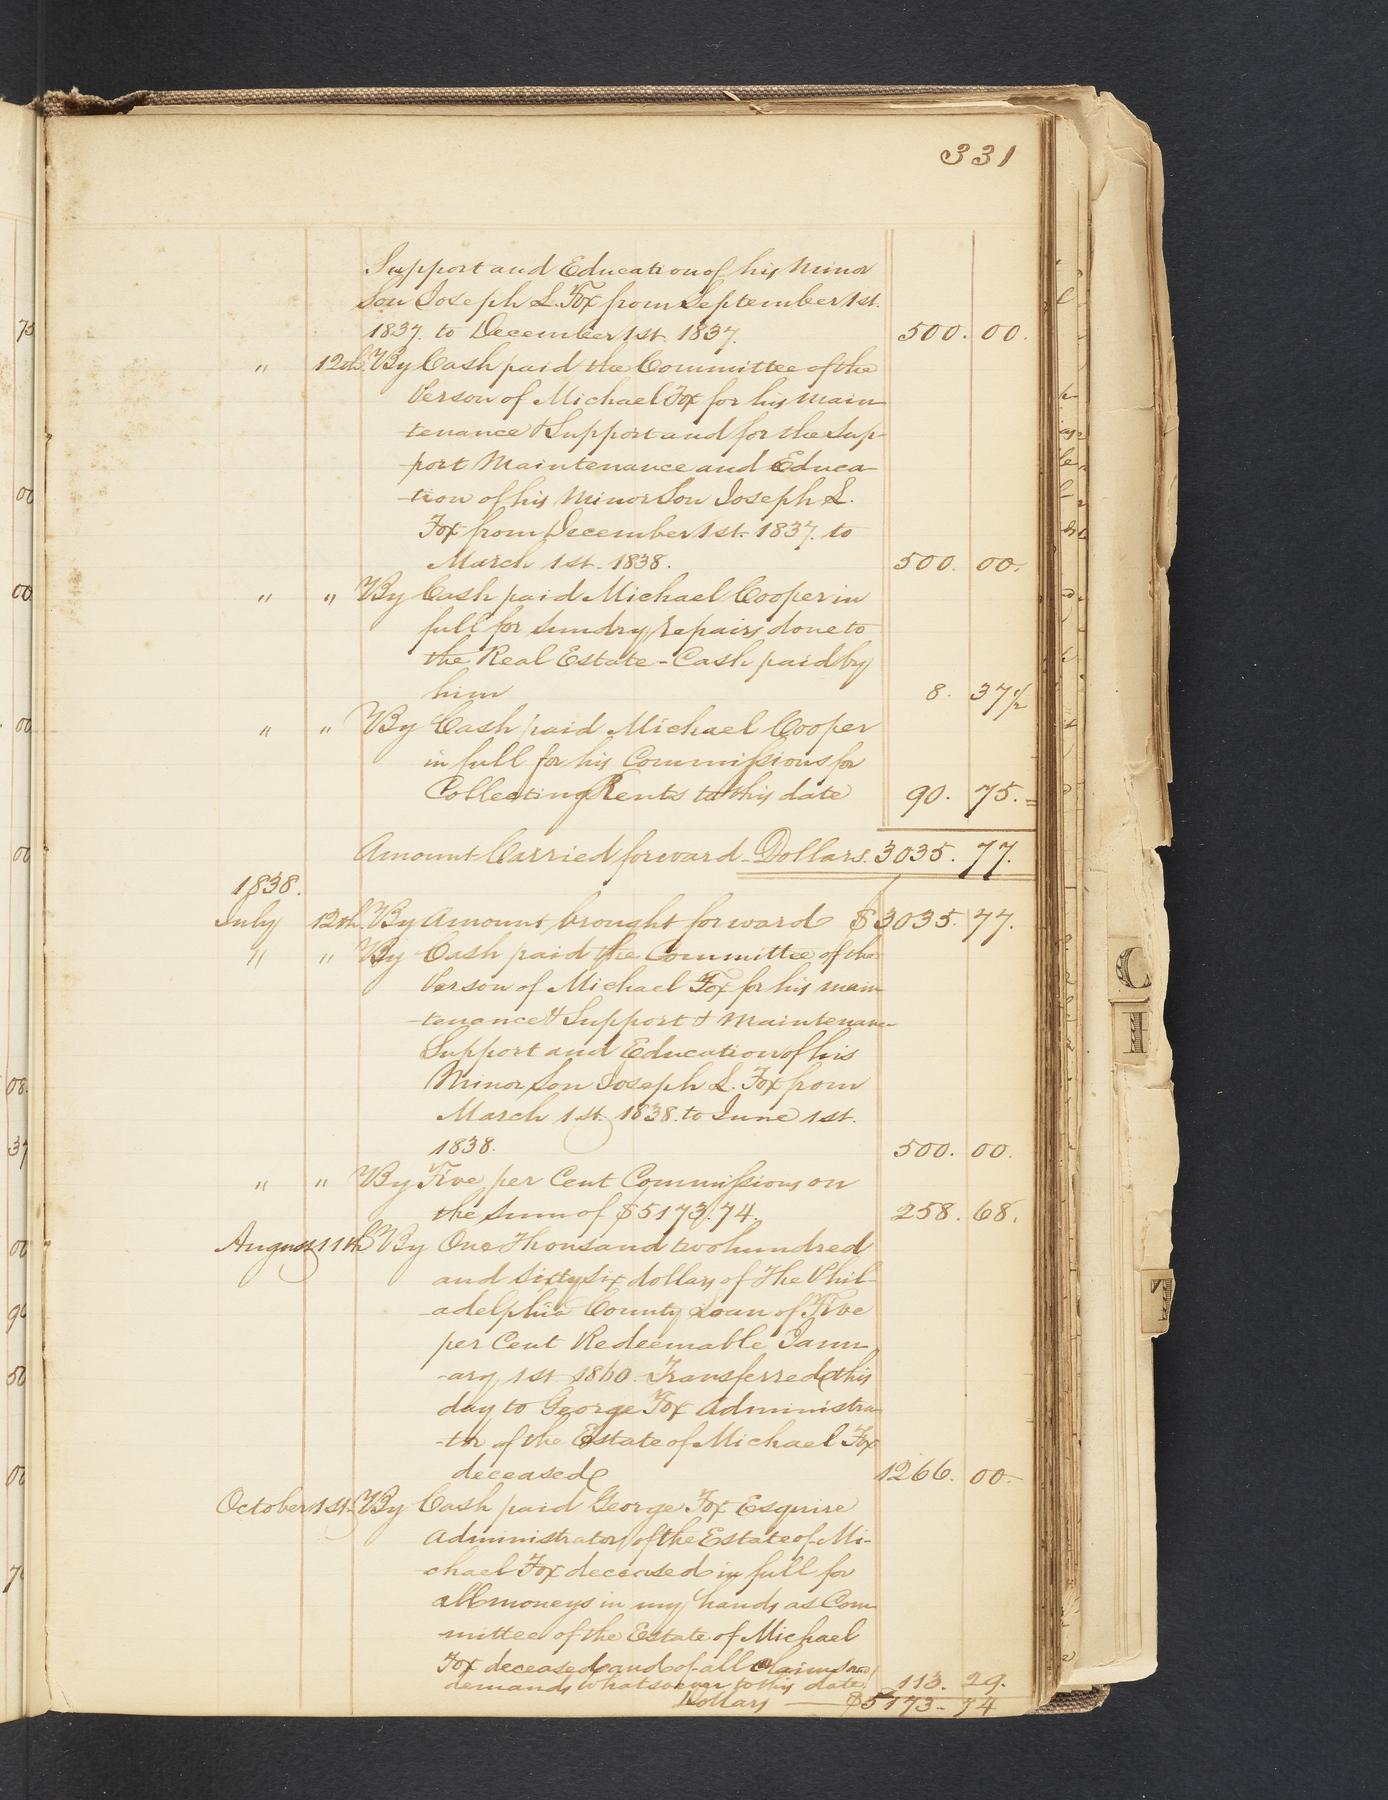 331
Support and Education of his Minor
Son Joseph L. Fox from September 1st.
1837. to December 1st. 1837. 500. 00.
" 12th. By Cash paid the Committee of the
Person of Michael Fox for his main
tenance & Support and for the Sup-
port Maintenance and Educa
-tion of his Minor Son Joseph L.
Fox from December 1st. 1837. to
March 1st. 1838. 500. 00.
" " By Cash paid Michael Cooper in
full for Sundry repairs done to
the Real Estate - Cash paid by
him 8. 37 1/2
" " By Cash paid Michael Cooper
in full for his Commissions for
Collecting Rents to this date 90. 75.=
Amount Carried forward - Dollars. 3035. 77.
1838.
July 12th. By Amount brought forward $3035. 77.
" " By Cash paid the Committee of the
Person of Michael Fox for his main
-tenance & Support & Maintenance
Support and Education of his
Minor Son Joseph L. Fox from
March 1st. 1838. to June 1st.
1838. 500. 00.
" " By Five per Cent Commissions on
the Sum of $5173.74. 258. 68.
August 11th By One Thousand two hundred
and sixty six dollars of The Phil-
adelphia County Loan of Five
per Cent Redeemable Janu
-ary 1st 1860. Transferred this
day to George Fox Administra
-tor of the Estate of Michael Fox
deceased 1266. 00-
October 1st. By Cash paid George Fox Esquire
Administrator of the Estate of Mi-
chael Fox deceased in full for
all moneys in my hands as Com
mittee of the Estate of Michael
Fox deceased and of all claims and
demands whatsoever to this date. 113. 29.
Dollars $5173- 74